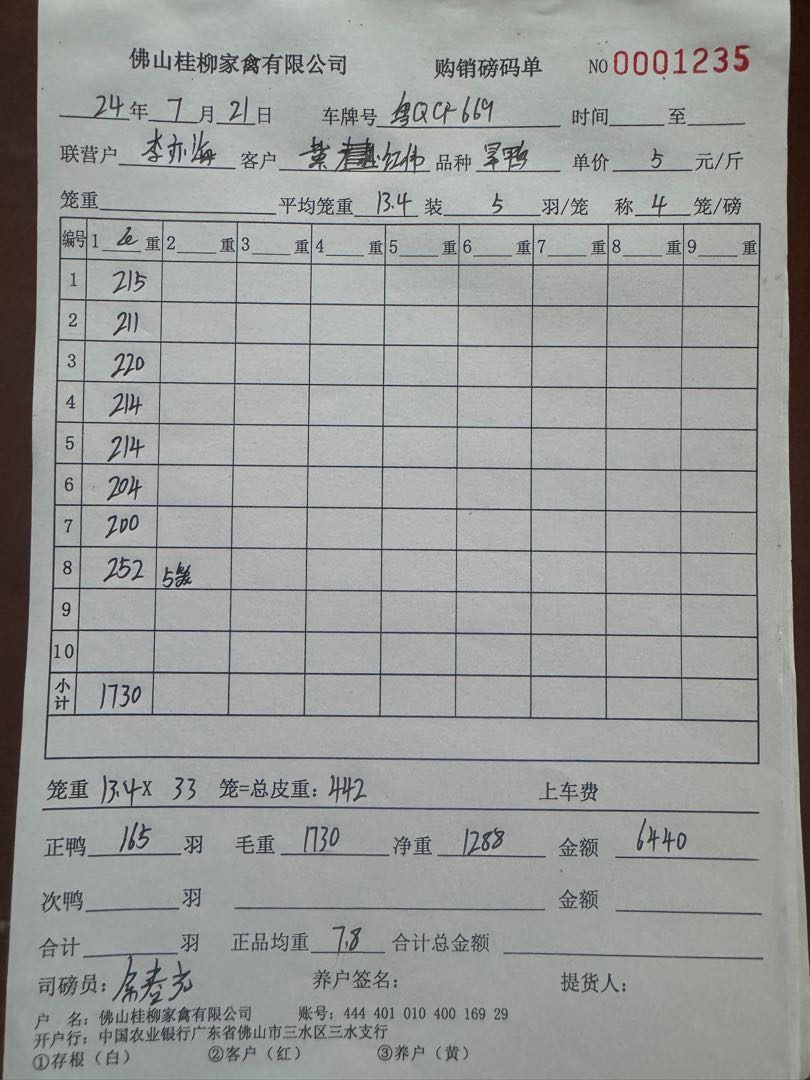 佛山桂柳家禽有限公司 购销磅码单 NO 0001235
24年7月21日 车牌号 粤QCF669 时间 至
联营户 李亦海 客户 红伟 品种 旱鸭 单价 5 元/斤
笼重 平均笼重 13.4 装 5 羽/笼 称 4 笼/磅
编号 1 毛 重 2 重 3 重 4 重 5 重 6 重 7 重 8 重 9 重
1 215
2 211
3 220
4 214
5 214
6 204
7 200
8 252 5
9
10
小计 1730
笼重 13.4 X 33 笼=总皮重: 442 上车费
正鸭 165 羽 毛重 1730 净重 1288 金额 6440
次鸭 羽 金额
合计 羽 正品均重 7.8 合计总金额
司磅员: 养户签名: 提货人:
户 名: 佛山桂柳家禽有限公司 账号: 444 401 010 400 169 29
开户行: 中国农业银行广东省佛山市三水区三水支行
①存根(白) ②客户(红) ③养户(黄)